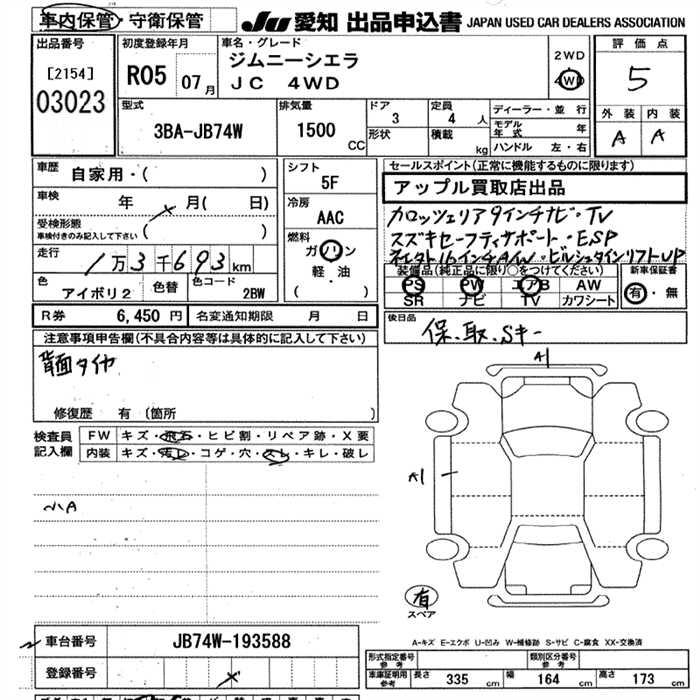 車内保管・守衛保管
JU 愛知 出品申込書 JAPAN USED CAR DEALERS ASSOCIATION
出品番号
[2154]
03023
初度登録年月
R05 07月
車名・グレード
ジムニーシエラ
JC 4WD
2WD
4WD
評価点
5
外装 内装
A A
型式
3BA-JB74W
排気量
1500
CC
ドア
3
形状
定員
4 人
積載
kg
ディーラー・並行
モデル年式 年
ハンドル 左・右
車歴
自家用・( )
車検 年 月( 日)
受検形態
車検付きのみ記入して下さい ( )
走行
1万3千693km
色
アイボリ2
色替
色コード
2BW
シフト
5F
冷房
AAC
燃料
ガソリン
軽・油
( )
セールスポイント(正常に機能するものに限ります)
アップル買取店出品
カロッツェリア9インチナビ・TV
スズキセーフティサポート・ESP
社外16インチAW・ビルシュタインリフトUP
装備品(純正品に限り○をつけてください)
PS PW エアB AW
SR ナビ TV カワシート
新車保証書
有・無
R券 6,450円 名変通知期限 月 日
後日品
保・取・Sキー
注意事項申告欄(不具合内容等は具体的に記入して下さい)
背面タイヤ
修復歴 有(箇所 )
検査員
記入欄
FW キズ・飛石・ヒビ割・リペア跡・X要
内装 キズ・汚レ・コゲ・穴・スレ・キレ・破レ
小A
A1
A1
有
スペア
A-キズ E-エクボ U-凹み W-補修跡 S-サビ C-腐食 XX-交換済
車台番号 JB74W-193588
登録番号
形式指定番号
参考
類別区分番号
参考
車庫証明用
参考
長さ 335 cm 幅 164 cm 高さ 173 cm